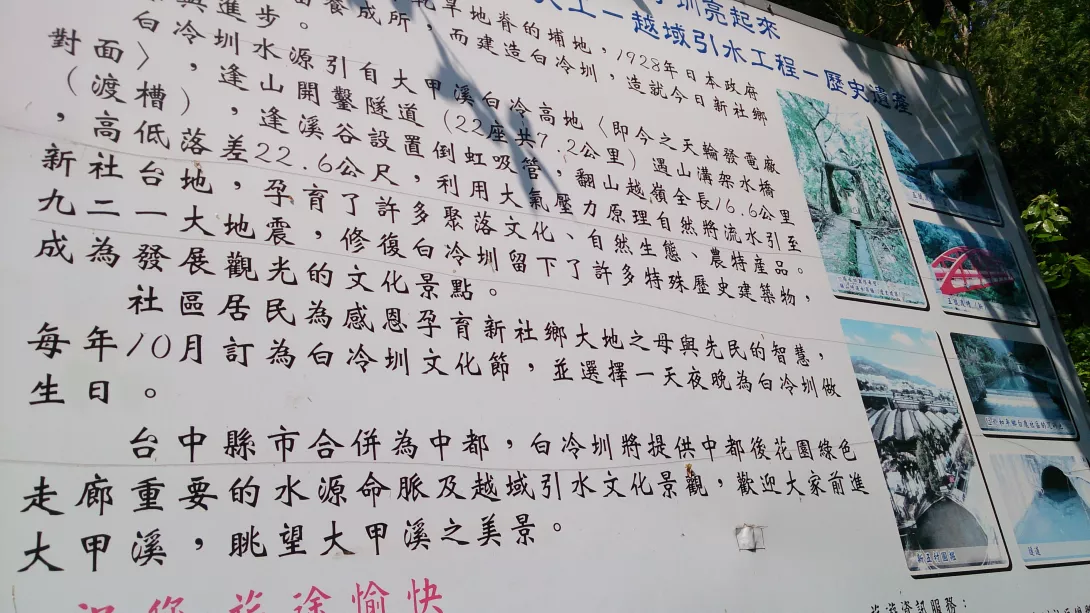 圳亮起來
工－越域引水工程－歷史遺產
養成所，
乾旱地脊的埔地，1928年日本政府
與進步。
而建造白冷圳，造就今日新社鄉
白冷圳水源引自大甲溪白冷高地〈即今之天輪發電廠
對面〉，逢山開鑿隧道（22座共7.2公里）遇山溝架水橋
（渡槽），逢溪谷設置倒虹吸管，翻山越嶺全長16.6公里
，高低落差22.6公尺，利用大氣壓力原理自然將流水引至
新社台地，孕育了許多聚落文化、自然生態、農特產品。
九二一大地震，修復白冷圳留下了許多特殊歷史建築物，
成為發展觀光的文化景點。
社區居民為感恩孕育新社鄉大地之母與先民的智慧，
每年10月訂為白冷圳文化節，並選擇一天夜晚為白冷圳做
生日。
台中縣市合併為中都，白冷圳將提供中都後花園綠色
走廊重要的水源命脈及越域引水文化景觀，歡迎大家前進
大甲溪，眺望大甲溪之美景。
祝您 旅途愉快
旅遊資訊服務：
新五村圓堀
隧道